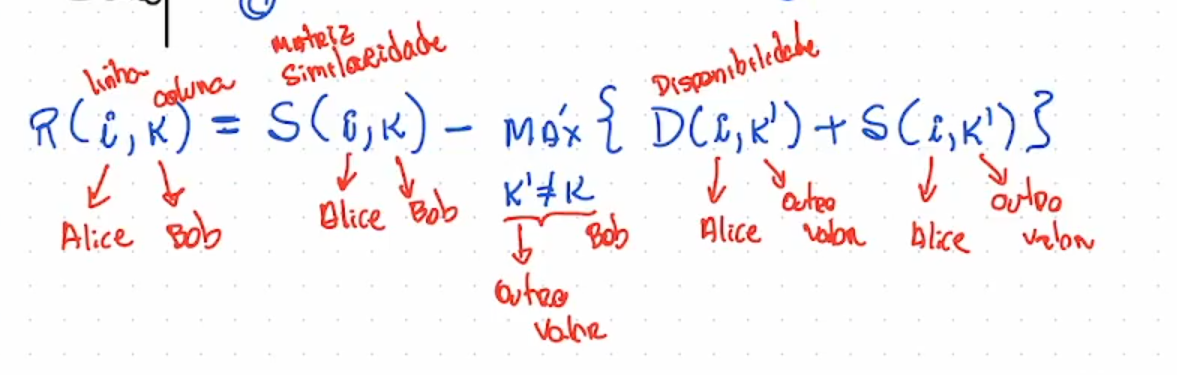 ©
linha coluna
Matriz
Similaridade
Disponibilidade
R(i,K) = S(i,K) - MÁX { D(i,K') + S(i,K') }
K'≠K
Alice Bob Alice Bob Bob Alice outro valor Alice outro valor
outro
valor